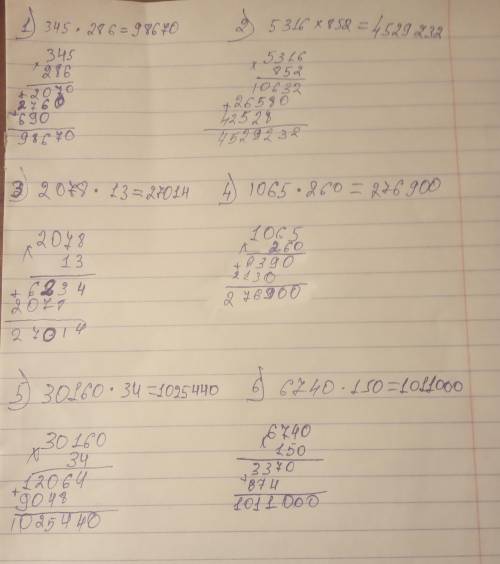 1) 345 · 286 = 98670
345
× 286
+ 2070
2760
+ 690
98670
2) 5316 × 852 = 4529232
× 5316
852
10632
+ 26580
42528
4529232
3) 2078 · 13 = 27014
× 2078
13
+ 6234
2078
27014
4) 1065 · 260 = 276900
1065
× 260
+ 6390
2130
276900
5) 30160 · 34 = 1025440
× 30160
34
12064
+ 9048
1025440
6) 6740 · 150 = 1011000
× 6740
150
3370
+ 674
1011000